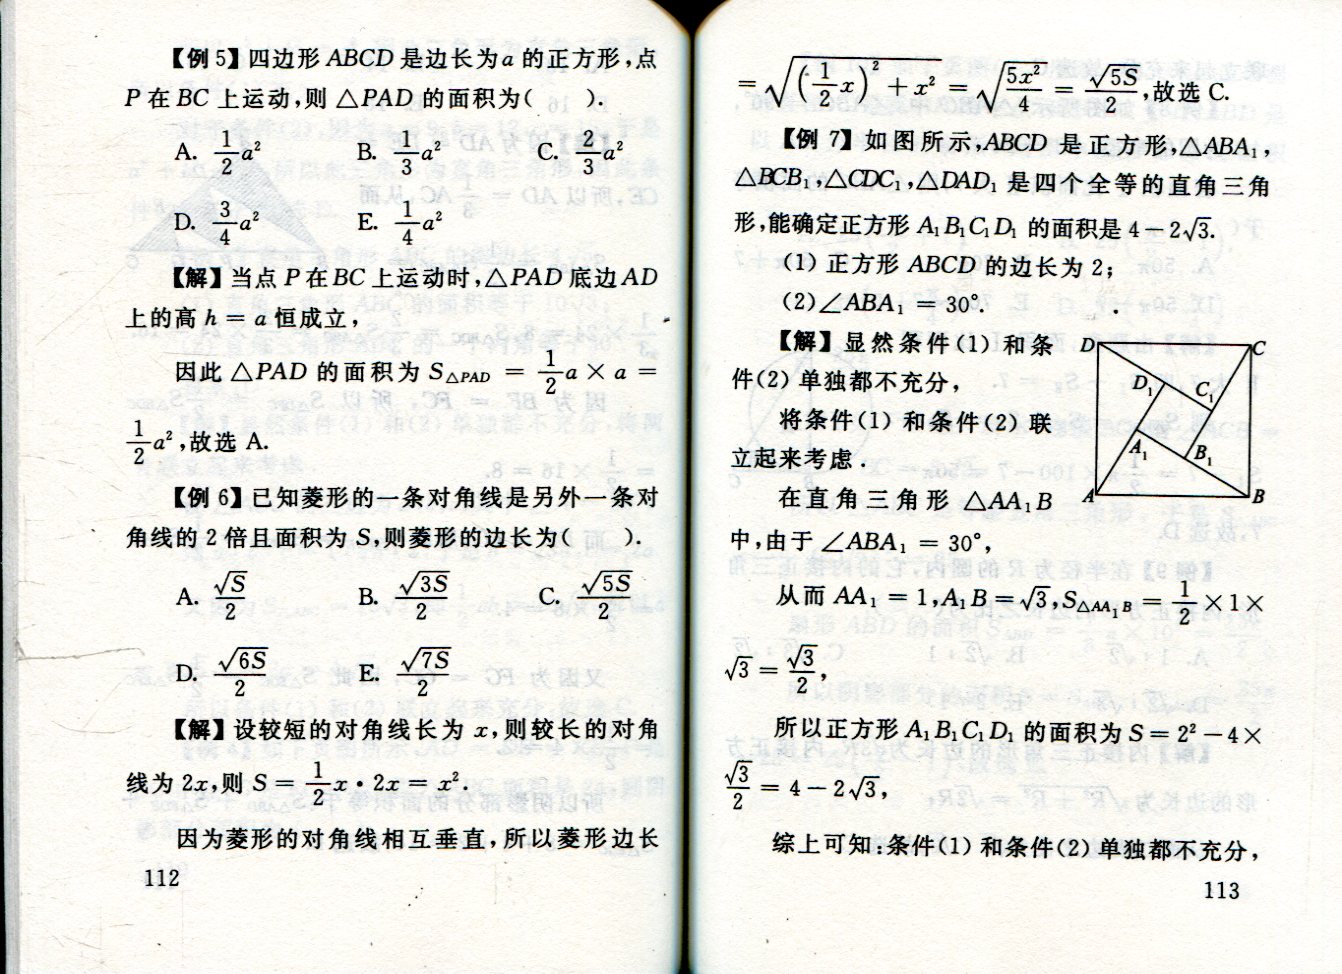 【例5】四边形 ABCD 是边长为 a 的正方形,点
P 在 BC 上运动,则 △PAD 的面积为(　　).
A. 1/2 a²　B. 1/3 a²　C. 2/3 a²
D. 3/4 a²　E. 1/4 a²
【解】当点 P 在 BC 上运动时,△PAD 底边 AD
上的高 h = a 恒成立,
因此 △PAD 的面积为 S△PAD = 1/2 a × a =
1/2 a²,故选 A.
【例6】已知菱形的一条对角线是另外一条对
角线的 2 倍且面积为 S,则菱形的边长为(　　).
A. √S/2　B. √3S/2　C. √5S/2
D. √6S/2　E. √7S/2
【解】设较短的对角线长为 x,则较长的对角
线为 2x,则 S = 1/2 x · 2x = x².
因为菱形的对角线相互垂直,所以菱形边长
112
= √((1/2 x)² + x²) = √(5x²/4) = √5S/2,故选 C.
【例 7】如图所示,ABCD 是正方形,△ABA₁,
△BCB₁,△CDC₁,△DAD₁ 是四个全等的直角三角
形,能确定正方形 A₁B₁C₁D₁ 的面积是 4 − 2√3.
(1) 正方形 ABCD 的边长为 2;
(2) ∠ABA₁ = 30°.
【解】显然条件(1) 和条
件(2) 单独都不充分,
将条件(1) 和条件(2) 联
立起来考虑.
在直角三角形 △AA₁B
中,由于 ∠ABA₁ = 30°,
D
C
D₁
C₁
A₁
B₁
A
B
从而 AA₁ = 1,A₁B = √3,S△AA₁B = 1/2 × 1 ×
√3 = √3/2,
所以正方形 A₁B₁C₁D₁ 的面积为 S = 2² − 4 ×
√3/2 = 4 − 2√3,
综上可知:条件(1) 和条件(2) 单独都不充分,
113